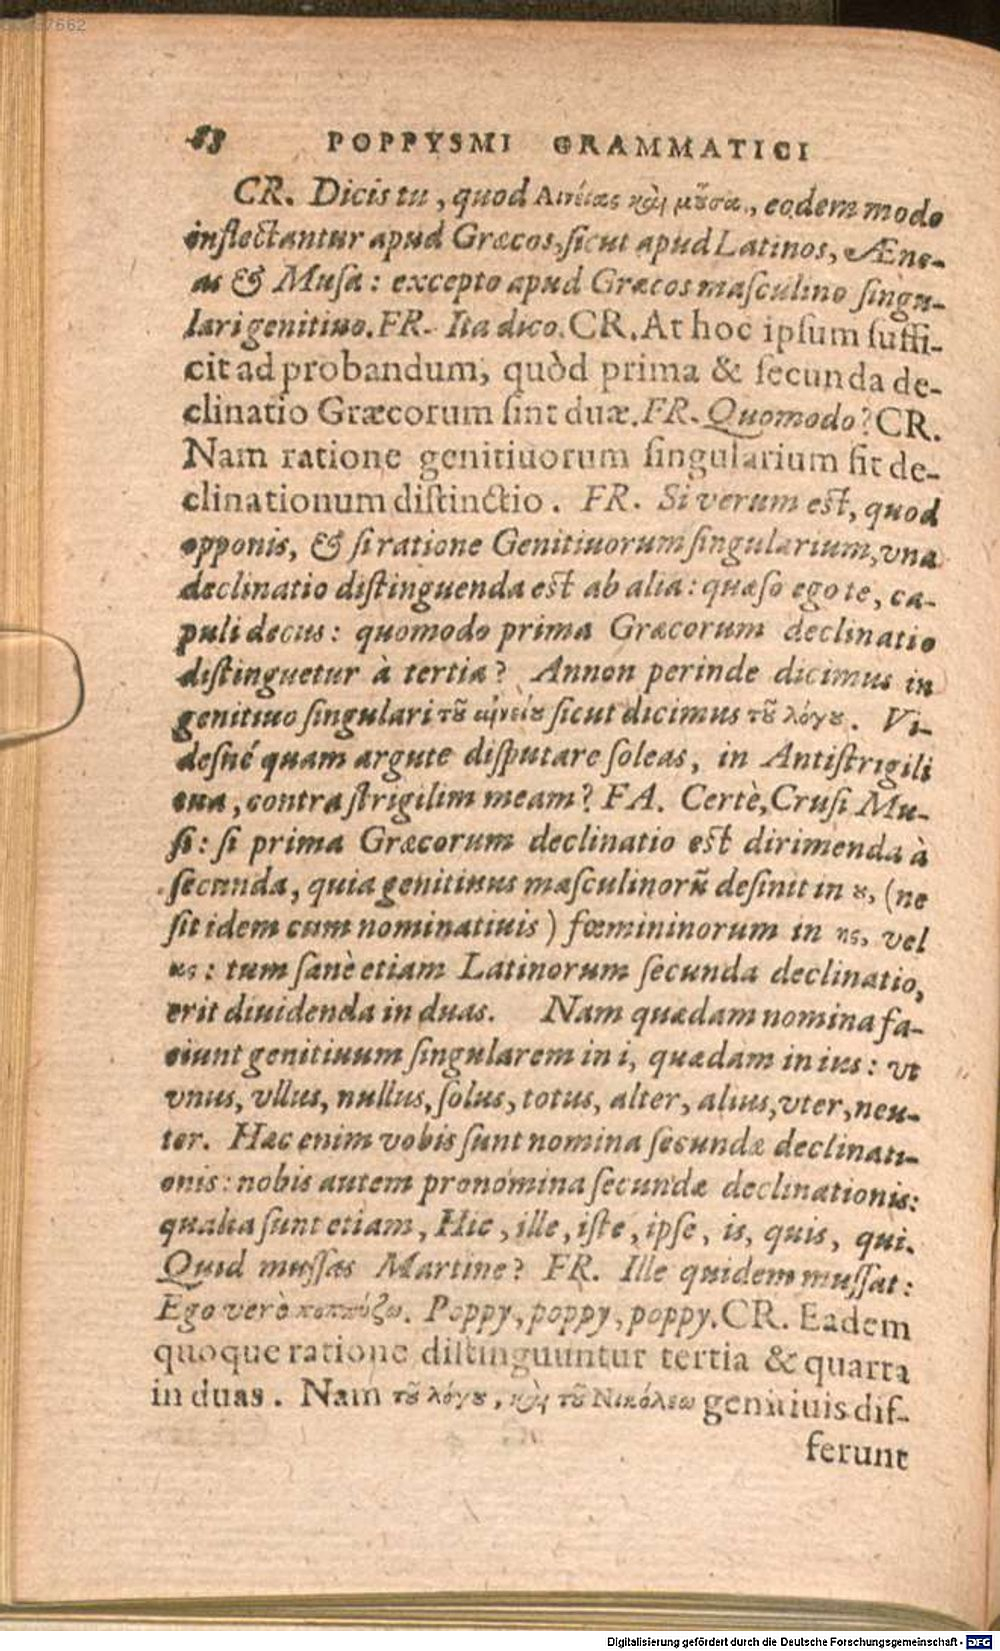 POPPYSMI GRAMMATICI
CR. Dicis tu, quod Αινείας καὶ μοῦσα, eodem modo
inflectantur apud Græcos, sicut apud Latinos, Æne-
as & Musa: excepto apud Græcos masculino singu-
lari genitiuo. FR. Ita dico. CR. At hoc ipsum suffi-
cit ad probandum, quòd prima & secunda de-
clinatio Græcorum sint duæ. FR. Quomodo? CR.
Nam ratione genitiuorum singularium fit de-
clinationum distinctio. FR. Si verum est, quod
opponis, & si ratione Genitiuorum singularium, vna
declinatio distinguenda est ab alia: quæso ego te, ca-
puli decus: quomodo prima Græcorum declinatio
distinguetur à tertia? Annon perinde dicimus in
genitiuo singulari τοῦ αἰνείου sicut dicimus τοῦ λόγου. Vi-
desné quam argute disputare soleas, in Antistrigili
tua, contra strigilim meam? FA. Certè, Crusi Mu-
si: si prima Græcorum declinatio est dirimenda à
secunda, quia genitiuus masculinorũ desinit in ου, (ne
sit idem cum nominatiuis) fœmininorum in ης, vel
ας: tum sanè etiam Latinorum secunda declinatio,
erit diuidenda in duas. Nam quædam nomina fa-
ciunt genitiuum singularem in i, quædam in ius: vt
vnus, vllus, nullus, solus, totus, alter, alius, vter, neu-
ter. Hæc enim vobis sunt nomina secundæ declinati-
onis: nobis autem pronomina secundæ declinationis:
qualia sunt etiam, Hic, ille, iste, ipse, is, quis, qui.
Quid mussas Martine? FR. Ille quidem mussat:
Ego verò ποππύζω. Poppy, poppy, poppy. CR. Eadem
quoque ratione distinguuntur tertia & quarta
in duas. Nam τοῦ λόγου, καὶ τοῦ Νικόλεω genitiuis dif-
ferunt
Digitalisierung gefördert durch die Deutsche Forschungsgemeinschaft - DFG